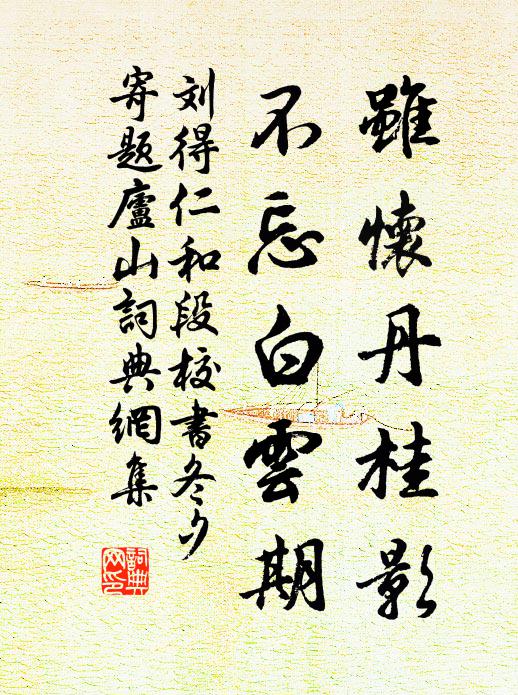 雖懷丹桂影
不忘白雲期
刘得仁和段校書冬夕
寄題廬山詞典網集
詞典網印